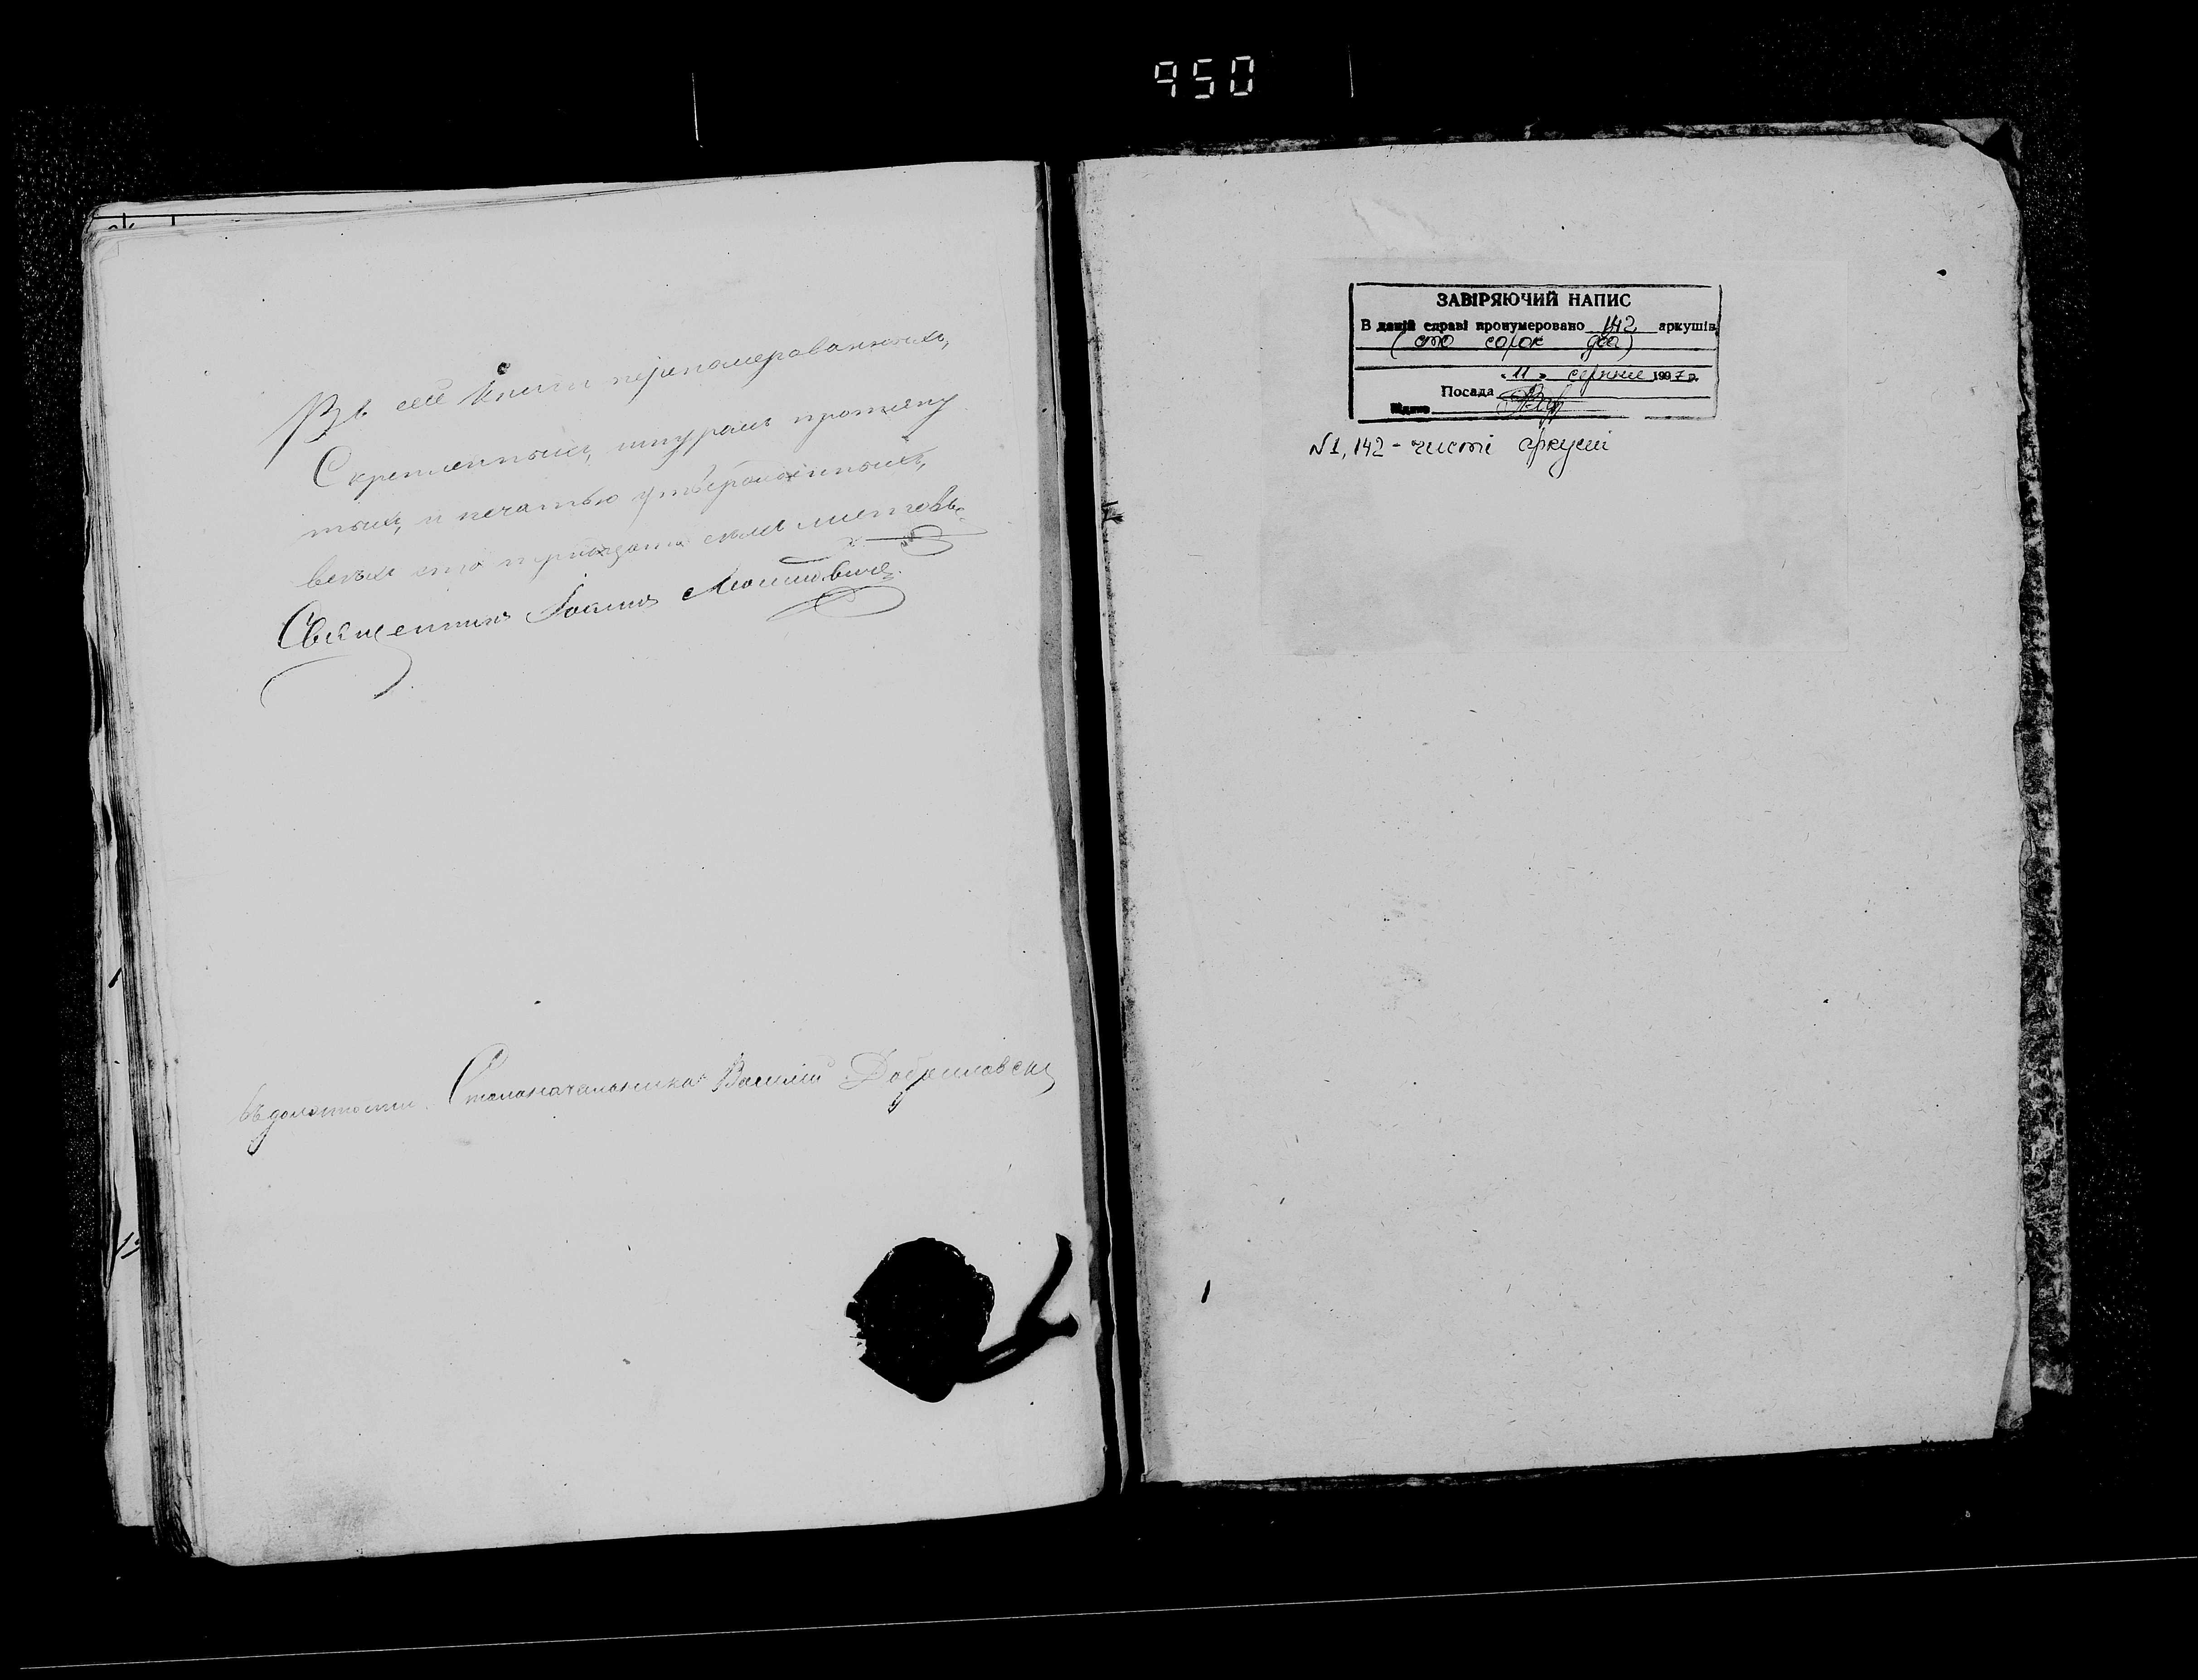 950
Въ сей книги перенумерованныхъ,
Скрепленныхъ, шнуромъ протяну
тыхъ, и печатью утвержденныхъ,
всехъ сто тридцать семь листовъ.
Священникъ Іоаннъ
въ должности Столоначальника Василій
ЗАВІРЯЮЧИЙ НАПИС
В даній справі пронумеровано 142 аркушів
(сто сорок два)
«11» серпня 1997 р.
Посада
Підпис
N1, 142 - чисті аркуші